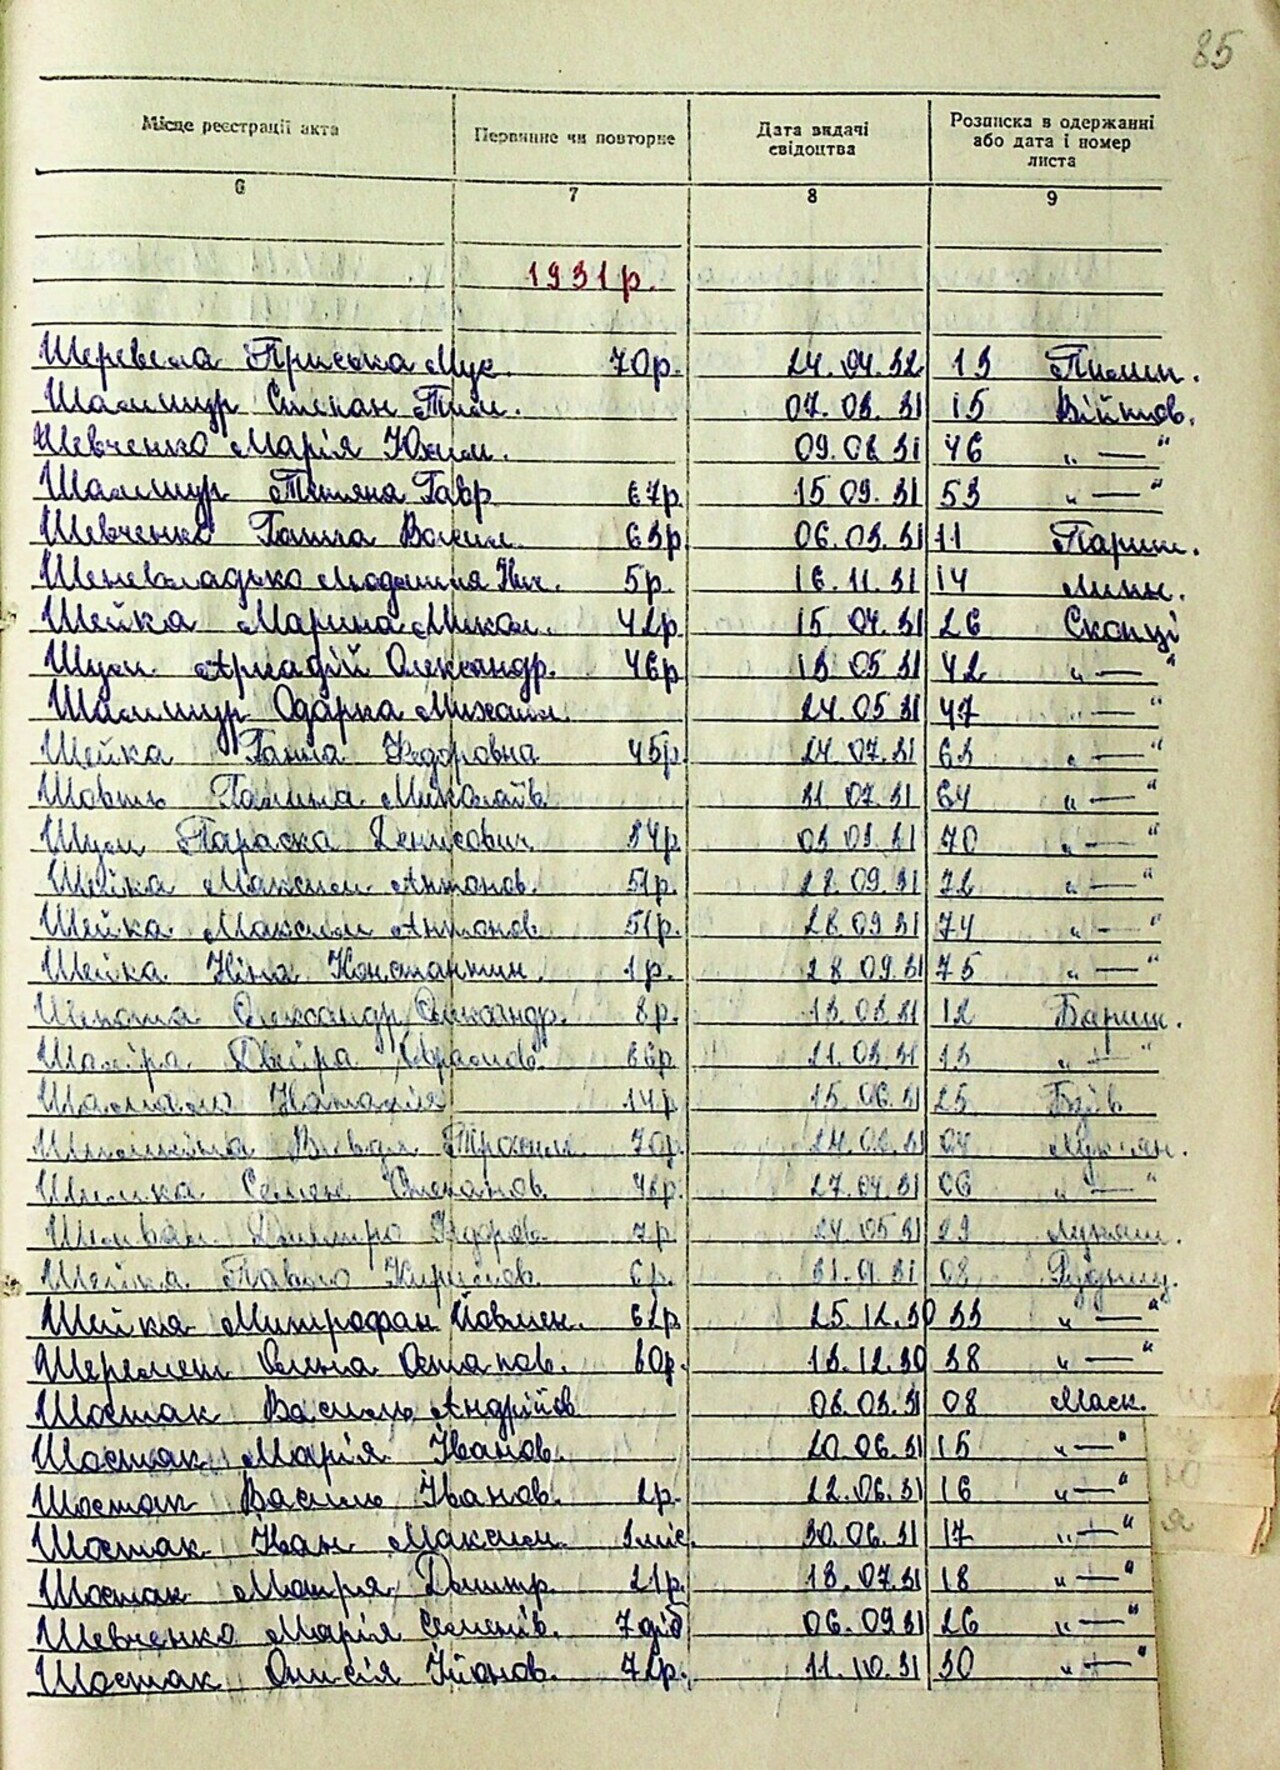 85
Місце реєстрації акта Первинне чи повторне Дата видачі свідоцтва Розписка в одержанні або дата і номер листа
6 7 8 9
1931р.
Шеревела Приська Мус. 70р. 24.04.32 13
Шалимур Степан Тим. 07.03.31 15 Війтов.
Шевченко Марія Юхим. 09.08.31 46 „—“
Шалимур Тетяна Гавр 67р. 15.09.31 53 „—“
Шевченко Ганна Васил. 63р 06.03.31 11 Париш.
5р. 16.11.31 14
Шейка Марина Микол. 42р 15.04.31 26 Скопці
Шум Аркадій Олександр. 46р 13.05.31 42 „—“
Шалимур Одарка Михайл. 24.05.31 47 „—“
Шейка Ганна Федоровна 45р. 24.07.31 63 „—“
Шовть Галина Миколаїв 31.07.31 64 „—“
Шум Параска Денисович 84р. 03.09.31 70 „—“
Шейка Максим Антонов. 51р. 28.09.31 72 „—“
Шейка Максим Антонов 51р. 28.09.31 74 „—“
Шейка Ніна Константин. 1р. 28.09.31 75 „—“
Олександр Олександр. 8р. 13.03.31 12 Бариш.
66р 21.03.31 13 „—“
Наталія 14р 15.06.31 25 Бзів
70р. 04
Шишка Семен Степанов. 27.04.31 06 „—“
Дмитро Федоров. 7р 24.05.31 29 Лукяш.
Шейка Павло Кирилов. 6р. 08 Рудниц.
Шейка Митрофан Йовмен. 62р 25.12.30 33 „—“
Шеремет Олена Остапов. 60р. 13.12.30 38 „—“
Шостак Василь Андрійов 08.03.31 08 Маск.
Шостак Марія Іванов. 20.06.31 15 „—“
Шостак Василь Іванов. 2р. 22.06.31 16 „—“
Шостак Іван Максим. 3міс. 30.06.31 17 „—“
Шостак Мотря Дмитр. 21р. 18.07.31 18 „—“
Шевченко Марія Семенів. 7діб 06.09.31 26 „—“
Шостак Онисія Йванов. 72р. 11.10.31 30 „—“